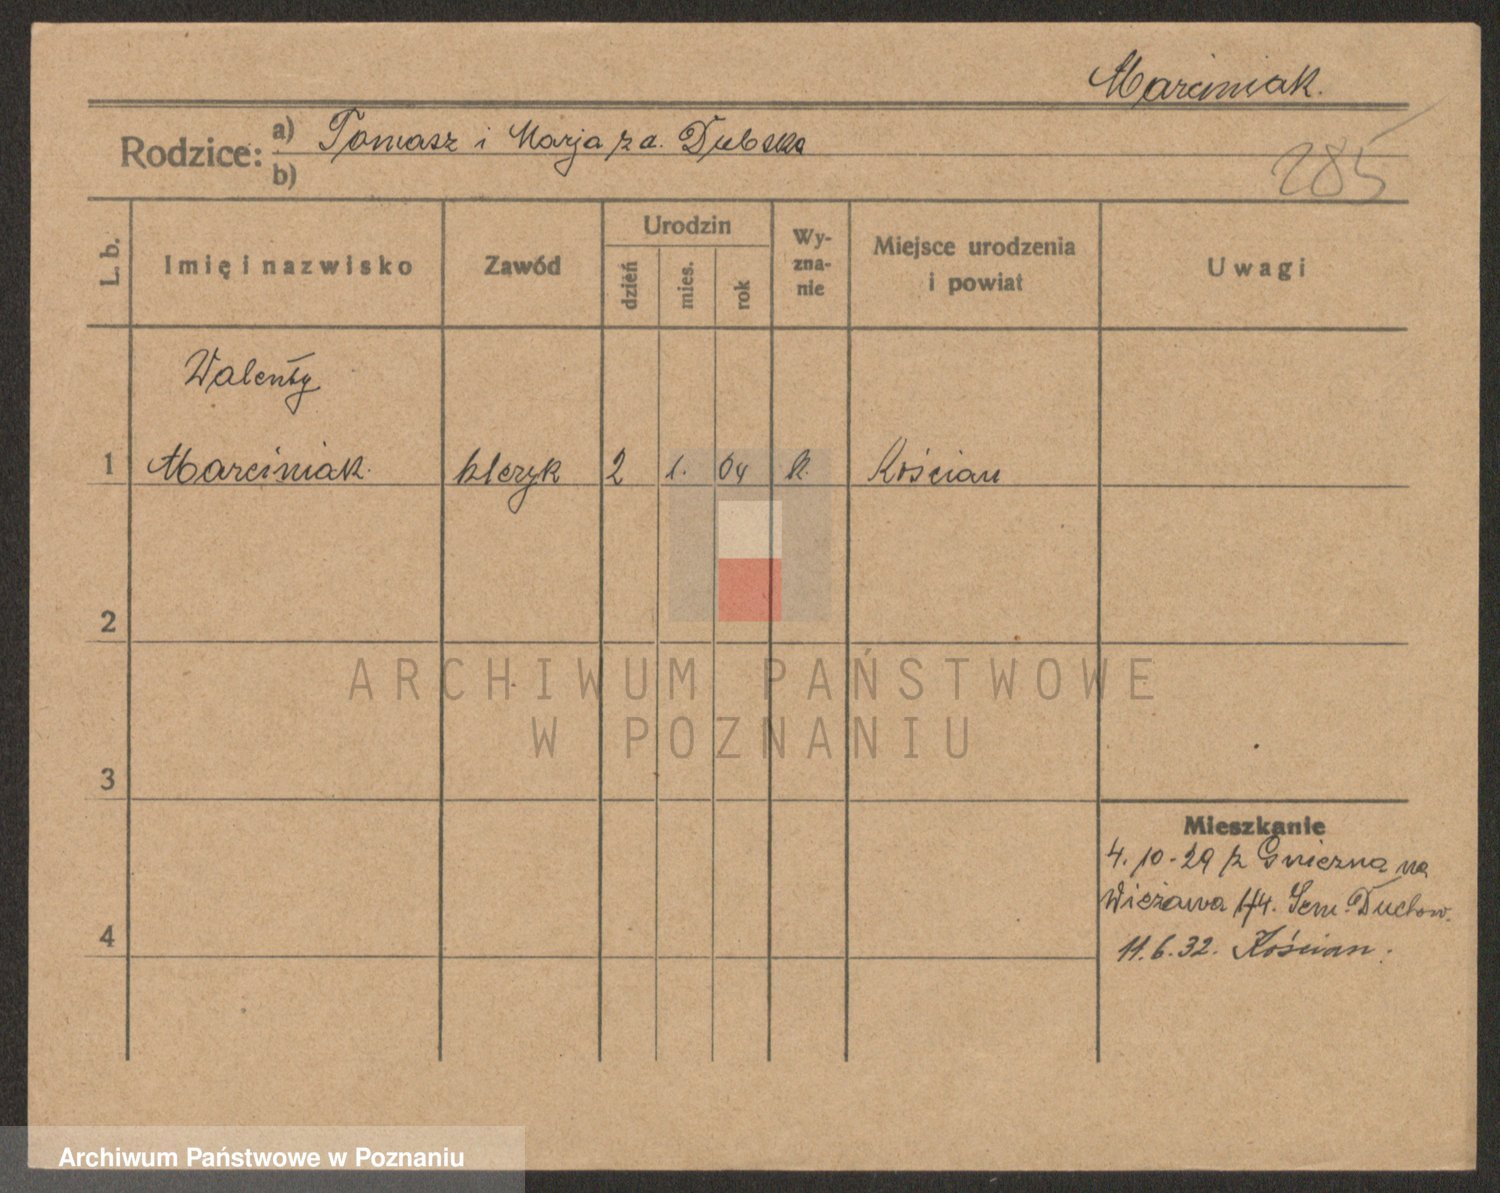 Marciniak.
Rodzice: a) Tomasz i Marja z d. Dubska
b)
285
L. b.
Imię i nazwisko
Zawód
Urodzin
dzień
mies.
rok
Wy-
zna-
nie
Miejsce urodzenia
i powiat
Uwagi
Walenty
1 Marciniak. kleryk 2 1. 04 k. Kościan
2
3
4
ARCHIWUM PAŃSTWOWE
W POZNANIU
Mieszkanie
4. 10 - 29 z Gniezna na
Wieżowa 1/4. Sem. Duchow.
11. 6. 32. Kościan.
Archiwum Państwowe w Poznaniu